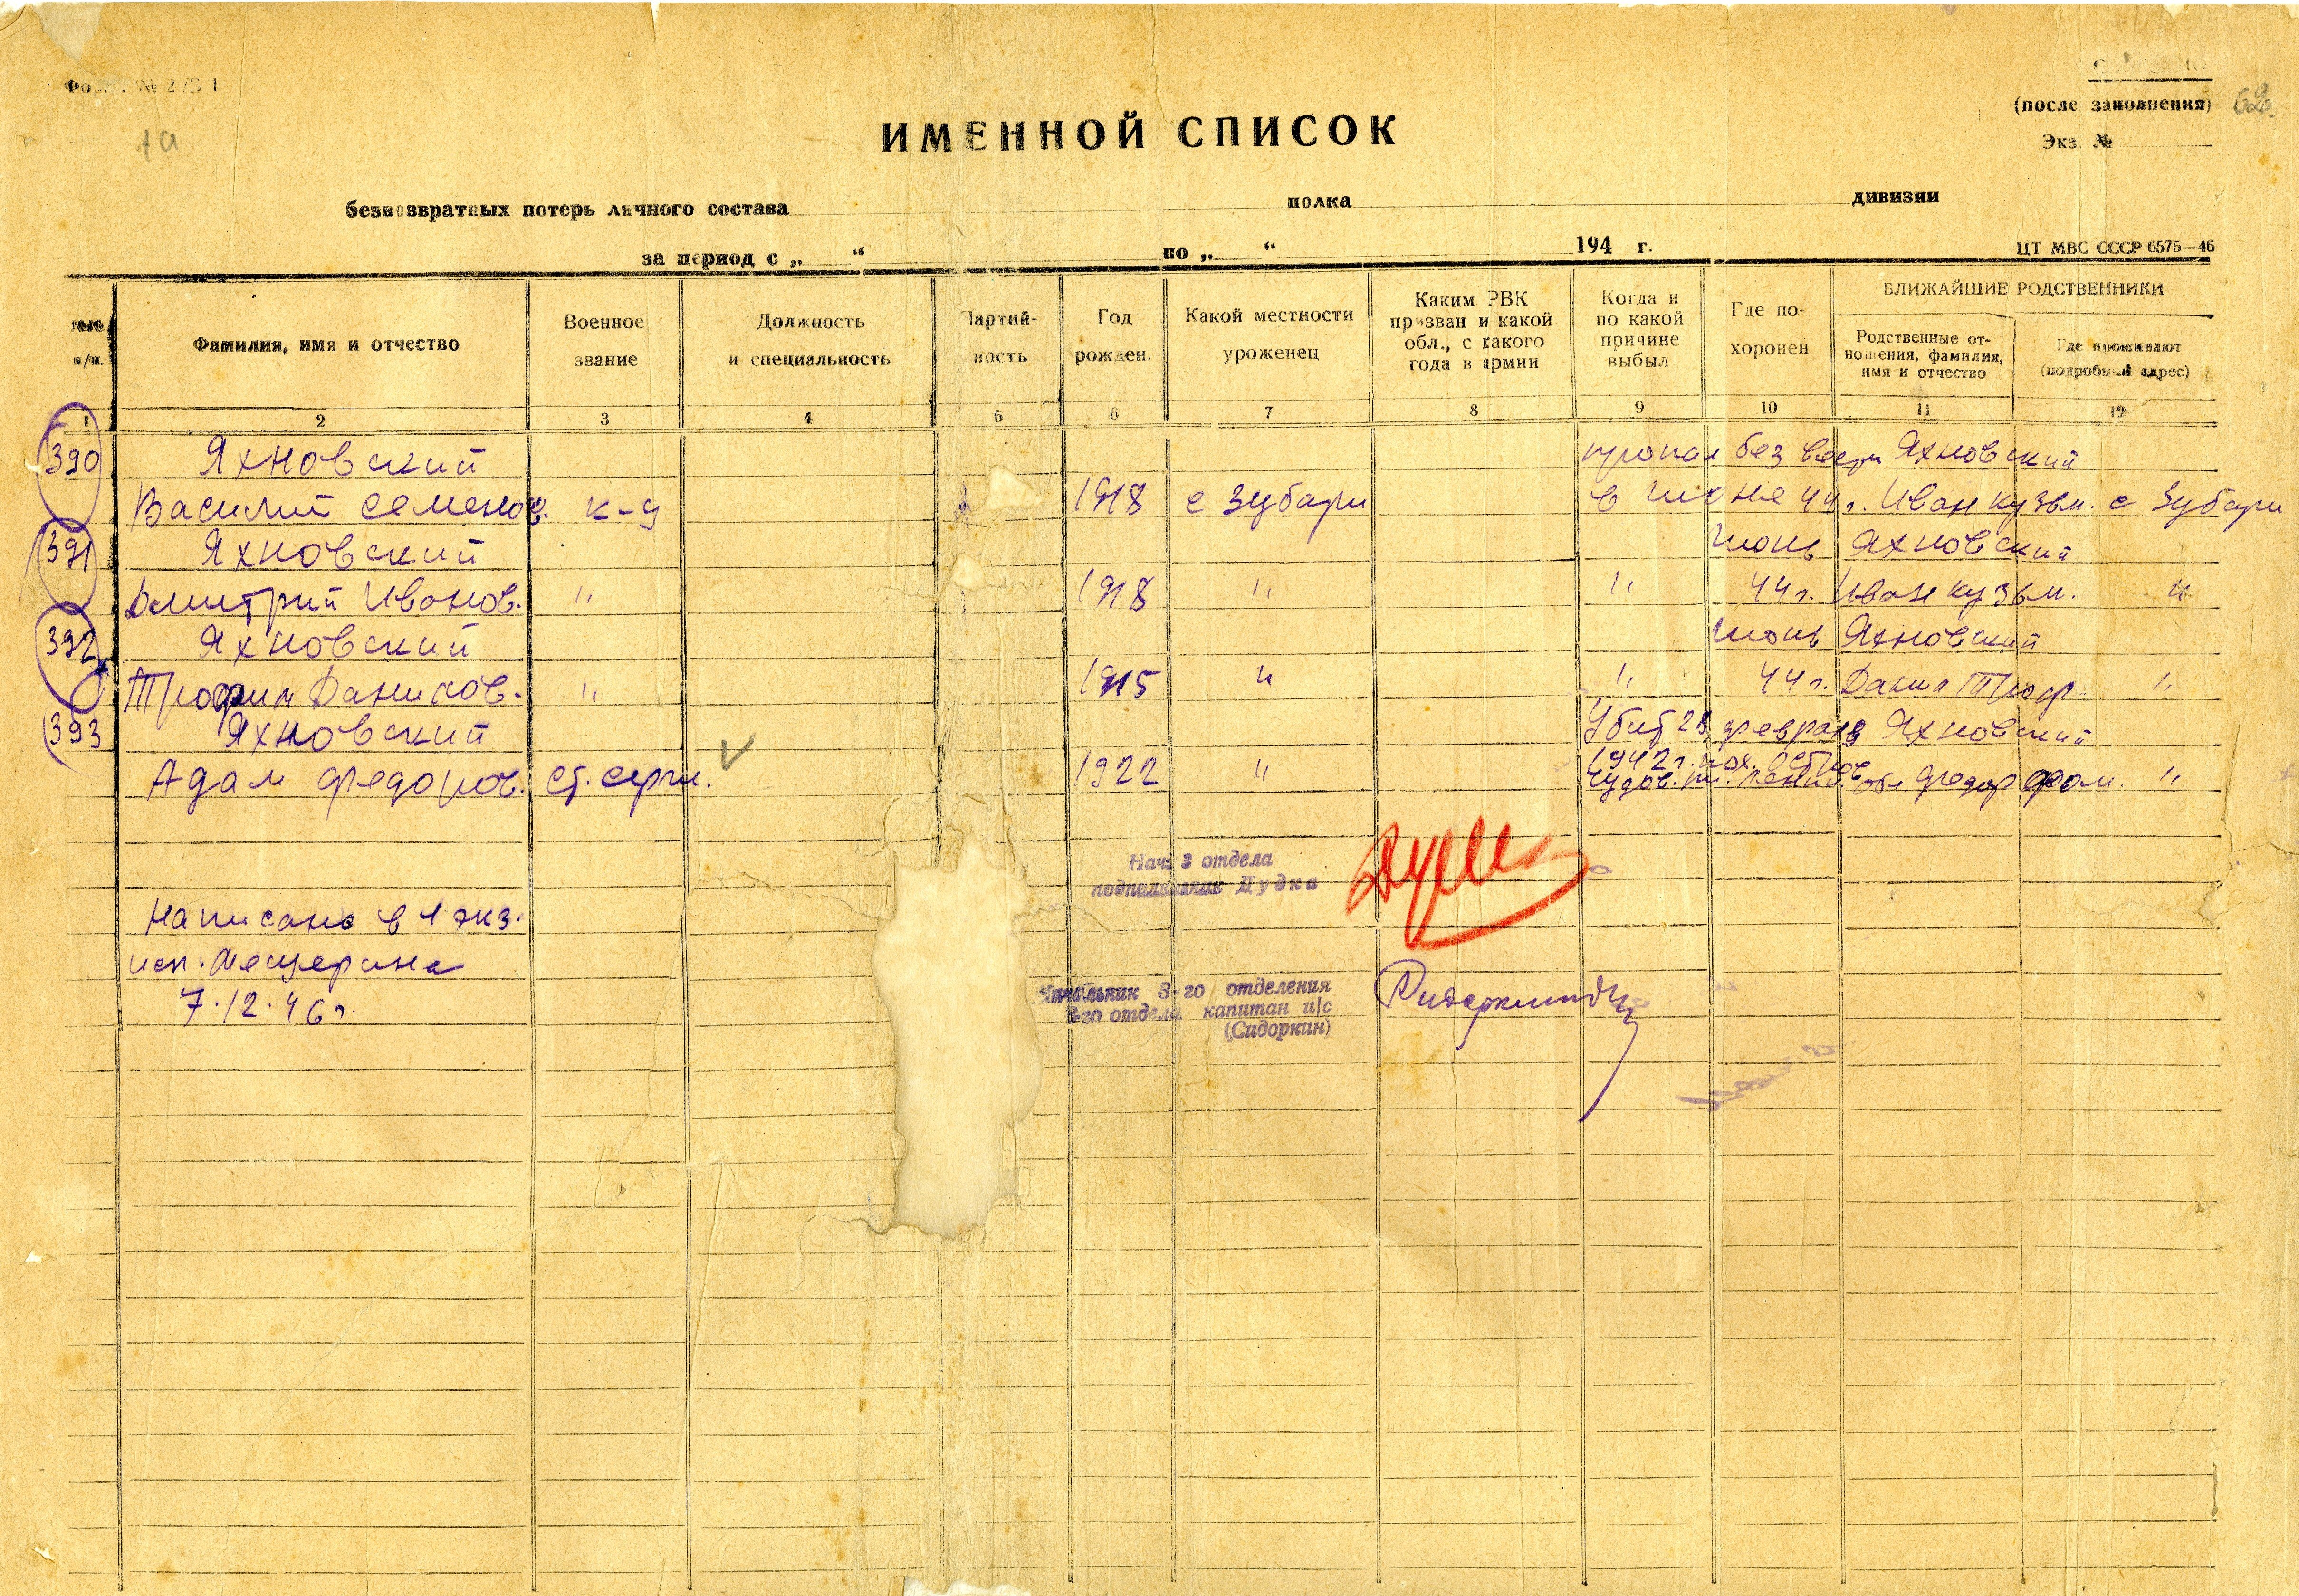 Форма № 2/БП
1а
(после заполнения)
Экз. №
ИМЕННОЙ СПИСОК
безвозвратных потерь личного состава полка дивизии
за период с „ “ по „ “ 194 г.
ЦТ МВС СССР 6575—46
п/п.
Фамилия, имя и отчество
Военное звание
Должность и специальность
Партий-
ность
Год рожден.
Какой местности уроженец
Каким РВК
призван и какой
обл., с какого
года в армии
Когда и
по какой
причине
выбыл
Где по-
хоронен
БЛИЖАЙШИЕ РОДСТВЕННИКИ
Родственные от-
ношения, фамилия,
имя и отчество
Где проживают
(подробный адрес)
1 2 3 4 5 6 7 8 9 10 11 12
390 Яхновский пропал без вести Яхновский
Василий Семенов. к-ц 1918 с Зубари в июне 44 г. Иван кузьм. с Зубари
391 Яхновский Июнь Яхновский
Дмитрий Иванов. " 1918 " " 44 г. Иван кузьм. "
392 Яхновский Июнь Яхновский
Трофим Данилов. " 1915 " " 44 г. Данил Троф. "
393 Яхновский Убит 28 февраля Яхновский
Адам Федоров. ст. серж. 1922 " 1942 г. пох. Федор "
Нач. 3 отдела
подполковник Дудка
Написано в 1 экз.
исп. Мещерина
7.12.46 г.
Начальник 3-го отделения
3-го отдела капитан и/с
(Сидоркин)